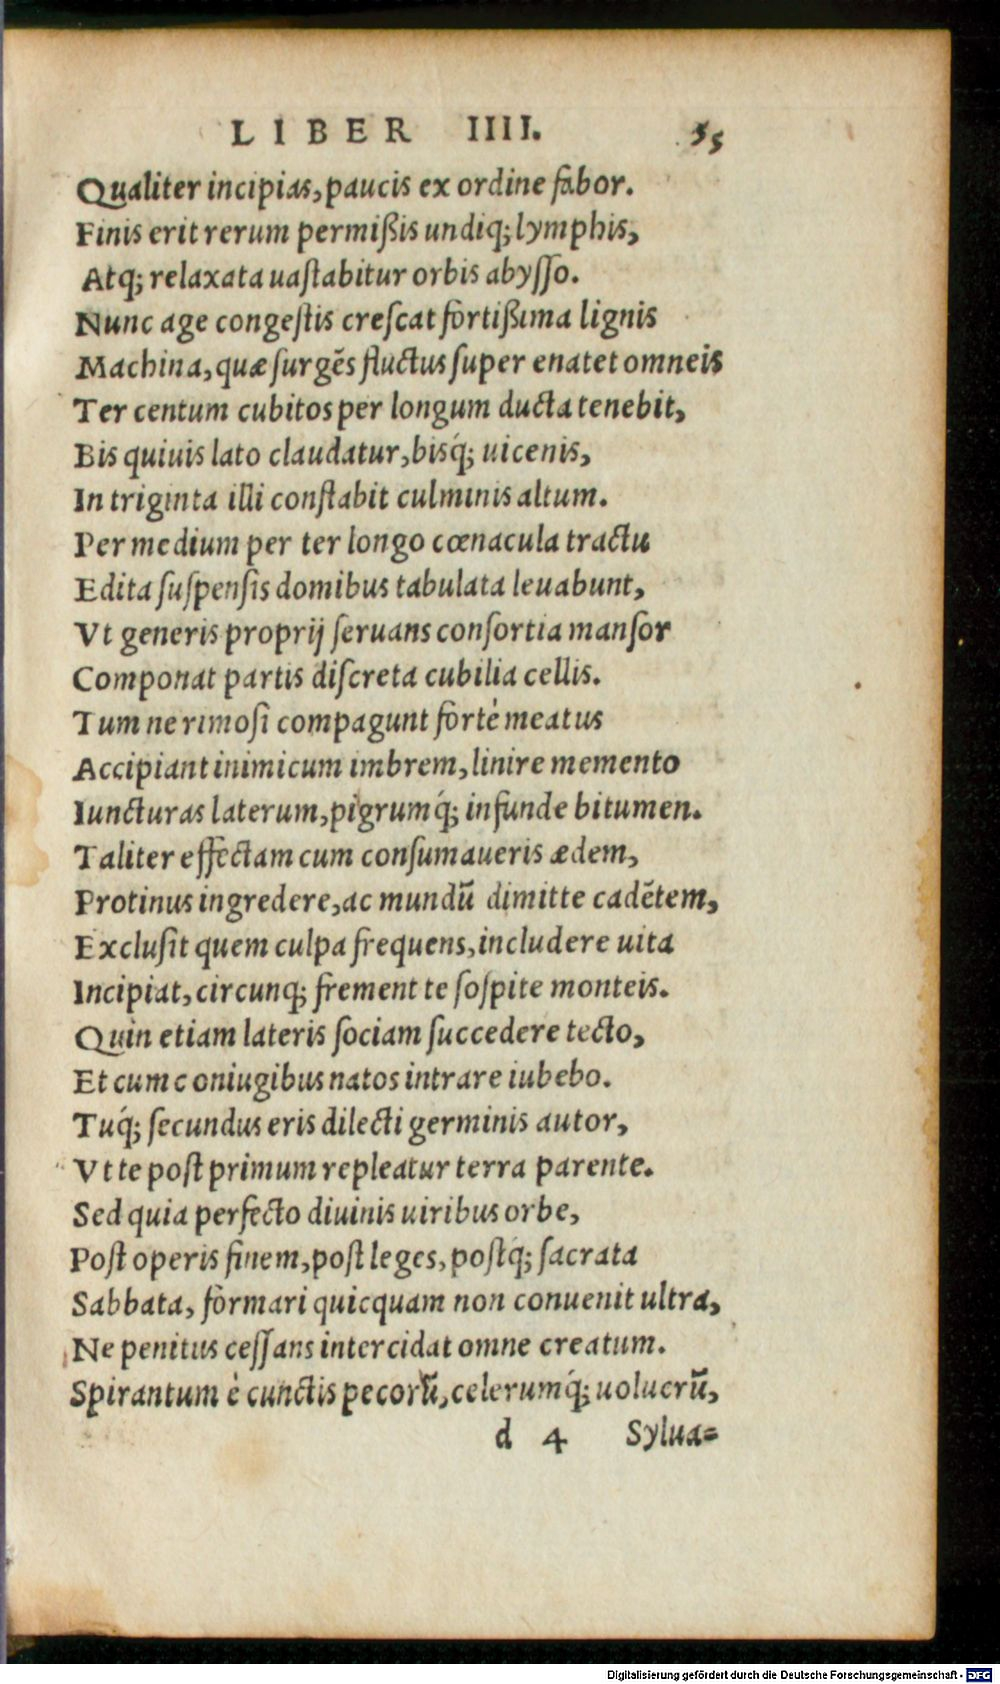 LIBER IIII. 55
Qualiter incipias, paucis ex ordine fabor.
Finis erit rerum permißis undiq; lymphis,
Atq; relaxata uaſtabitur orbis abyſſo.
Nunc age congeſtis creſcat fortißima lignis
Machina, quæ ſurgẽs fluctus ſuper enatet omneis
Ter centum cubitos per longum ducta tenebit,
Bis quiuis lato claudatur, bisq́; uicenis,
In triginta illi conſtabit culminis altum.
Per medium per ter longo cœnacula tractu
Edita ſuſpenſis domibus tabulata leuabunt,
Vt generis proprij ſeruans conſortia manſor
Componat partis diſcreta cubilia cellis.
Tum ne rimoſi compagunt fortè meatus
Accipiant inimicum imbrem, linire memento
Iuncturas laterum, pigrumq́; infunde bitumen.
Taliter effectam cum conſumaueris ædem,
Protinus ingredere, ac mundũ dimitte cadẽtem,
Excluſit quem culpa frequens, includere uita
Incipiat, circunq; frement te ſoſpite monteis.
Quin etiam lateris ſociam ſuccedere tecto,
Et cum coniugibus natos intrare iubebo.
Tuq́; ſecundus eris dilecti germinis autor,
Vt te poſt primum repleatur terra parente.
Sed quia perfecto diuinis uiribus orbe,
Poſt operis finem, poſt leges, poſtq́; ſacrata
Sabbata, formari quicquam non conuenit ultra,
Ne penitus ceſſans intercidat omne creatum.
Spirantum è cunctis pecorũ, celerumq́; uolucrũ,
d 4 Sylua=
Digitalisierung gefördert durch die Deutsche Forschungsgemeinschaft - DFG